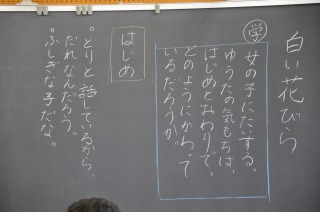 白い花びら
学
女の子にたいする、
ゆうたの気もちは、
はじめとおわりで、
どのようにかわって
いるだろうか。
はじめ
。とりと話しているから、
だれなんだろう。
。ふしぎな子だな。